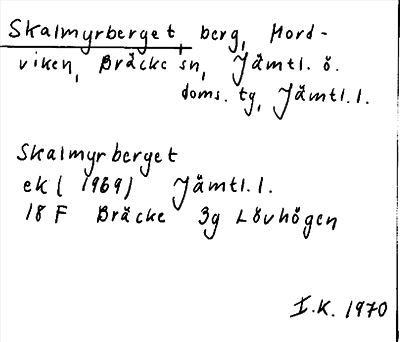 Skalmyrberget, berg, Mord-
viken, Bräcke sn, Jämtl. ö.
doms. tg, Jämtl. l.
Skalmyrberget
ek (1969) Jämtl. l.
18 F Bräcke 3g Lövhögen
I.K. 1970